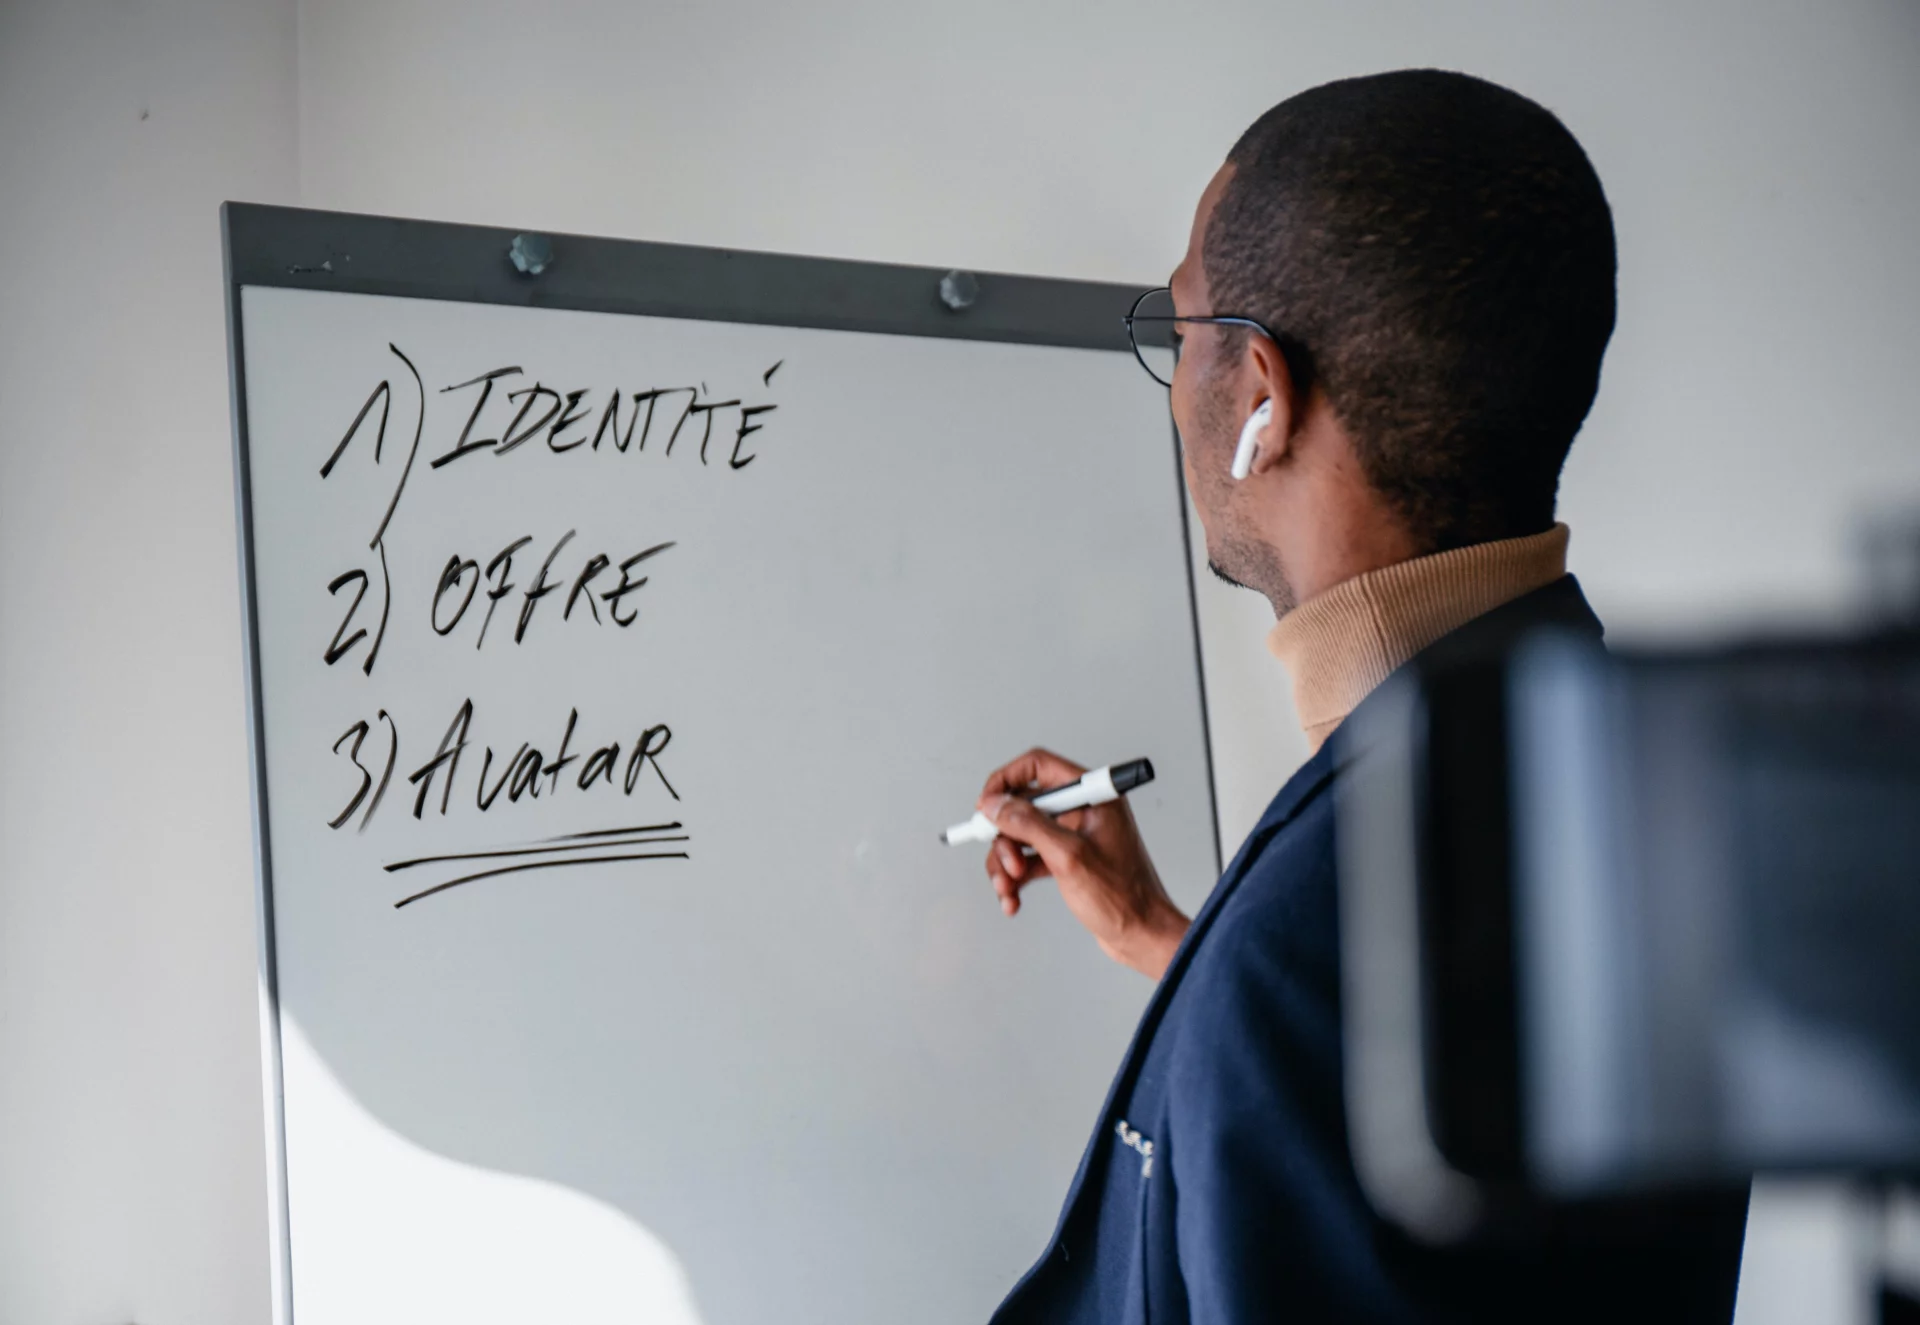 1) IDENTITÉ
2) OFFRE
3) AvataR